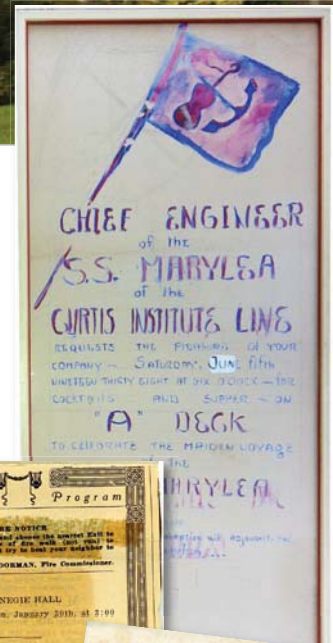 CHIEF ENGINEER
of the
S.S. MARYLEA
of the
CURTIS INSTITUTE LINE
REQUESTS THE PLEASURE OF YOUR
COMPANY — SATURDAY, JUNE fifth
NINETEEN THIRTY EIGHT AT SIX O'CLOCK — FOR
COCKTAILS AND SUPPER — ON
"A" DECK
TO CELEBRATE THE MAIDEN VOYAGE
the
MARYLEA
Program
NOTICE
and choose the nearest Exit to
of fire walk (not run) to
try to beat your neighbor to
DORMAN, Fire Commissioner.
NEGIE HALL
January 29th, at 3:00